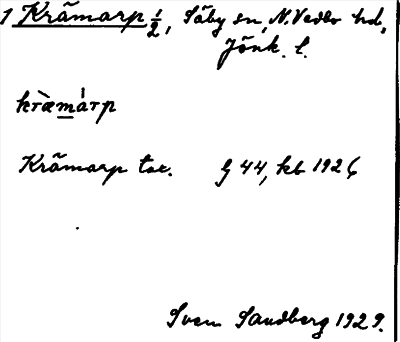 1 Krämarp 1/2, Säby sn, N. Vedbo hd,
Jönk. l.
kræ̀márp
Krämarp tor. G 44, kb 1926
Sven Sandberg 1929.